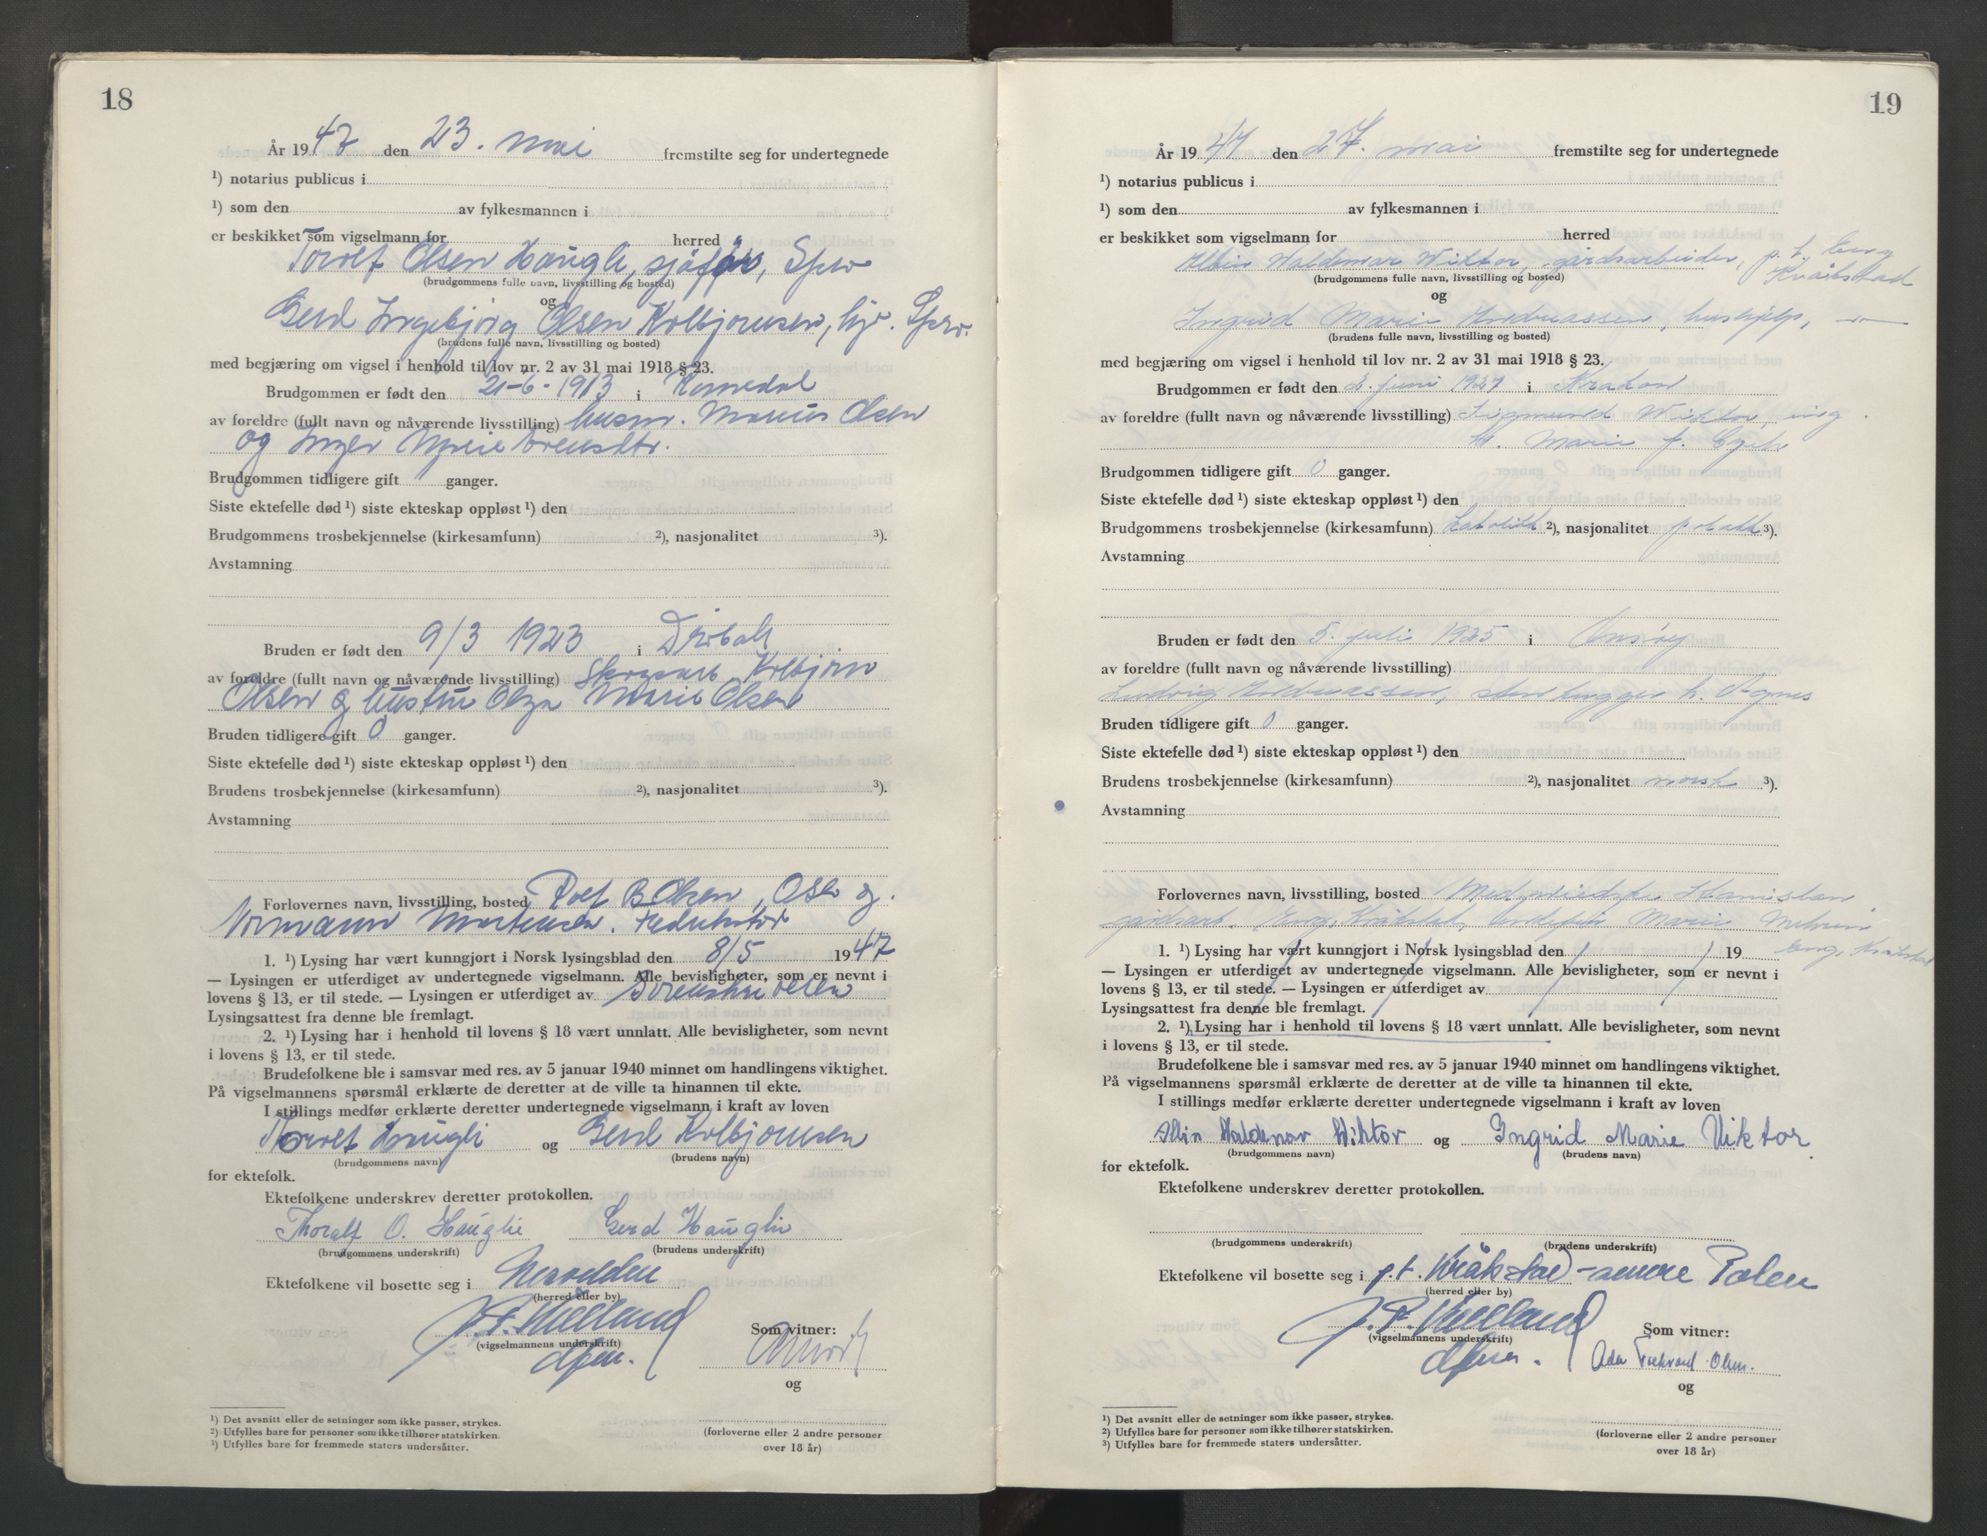 18
År 1947 den 23. mai fremstilte seg for undertegnede
¹) notarius publicus i
¹) som den av fylkesmannen i
er beskikket som vigselmann for herred
Torolf Olsen Haugli, sjåfør,
(brudgommens fulle navn, livsstilling og bosted)
og
Gerd Ingebjørg Olsen Kolbjørnsen,
(brudens fulle navn, livsstilling og bosted)
med begjæring om vigsel i henhold til lov nr. 2 av 31 mai 1918 § 23.
Brudgommen er født den 21-6-1913 i Romedal
av foreldre (fullt navn og nåværende livsstilling) husm. Marius Olsen
og Inger
Brudgommen tidligere gift ganger.
Siste ektefelle død ¹) siste ekteskap oppløst ¹) den
Brudgommens trosbekjennelse (kirkesamfunn) ²), nasjonalitet ³).
Avstamning
Bruden er født den 9/3 1923 i Drøbak
av foreldre (fullt navn og nåværende livsstilling) Kolbjørn
Olsen og hustru Olga Marie Olsen
Bruden tidligere gift 0 ganger.
Siste ektefelle død ¹) siste ekteskap oppløst ¹) den
Brudens trosbekjennelse (kirkesamfunn) ²), nasjonalitet ³).
Avstamning
Forlovernes navn, livsstilling, bosted Rolf B. Olsen, Oslo og
Normann Mortensen. Fredrikstad
1. ¹) Lysing har vært kunngjort i Norsk lysingsblad den 8/5 1947
— Lysingen er utferdiget av undertegnede vigselmann. Alle bevisligheter, som er nevnt i
lovens § 13, er til stede. — Lysingen er utferdiget av Sorenskriveren
Lysingsattest fra denne ble fremlagt.
2. ¹) Lysing har i henhold til lovens § 18 vært unnlatt. Alle bevisligheter, som nevnt
i lovens § 13, er til stede.
Brudefolkene ble i samsvar med res. av 5 januar 1940 minnet om handlingens viktighet.
På vigselmannens spørsmål erklærte de deretter at de ville ta hinannen til ekte.
I stillings medfør erklærte deretter undertegnede vigselmann i kraft av loven
Torolf Haugli og Gerd Kolbjørnsen
(brudgommens navn) (brudens navn)
for ektefolk.
Ektefolkene underskrev deretter protokollen.
Thoralf O. Hauglie Gerd Hauglie
(brudgommens underskrift) (brudens underskrift)
Ektefolkene vil bosette seg i Nesodden
(herred eller by)
J. P. Kielland Som vitner:
(vigselmannens underskrift)
og
¹) Det avsnitt eller de setninger som ikke passer, strykes.
²) Utfylles bare for personer som ikke tilhører statskirken.
³) Utfylles bare for fremmede staters undersåtter.
(forloverne eller 2 andre personer
over 18 år)
19
År 1947 den 27. mai fremstilte seg for undertegnede
¹) notarius publicus i
¹) som den av fylkesmannen i
er beskikket som vigselmann for herred
Albin Waldemar Wiktor, gårdsarbeider, p. t. Enng
Kråkstad
(brudgommens fulle navn, livsstilling og bosted)
og
Ingrid Marie Andreassen, hushjelp, —
(brudens fulle navn, livsstilling og bosted)
med begjæring om vigsel i henhold til lov nr. 2 av 31 mai 1918 § 23.
Brudgommen er født den 2. juni 1921 i Krakow
av foreldre (fullt navn og nåværende livsstilling) Sigmund Wiktor, ing.
h. Marie f.
Brudgommen tidligere gift 0 ganger.
Siste ektefelle død ¹) siste ekteskap oppløst ¹) den
Brudgommens trosbekjennelse (kirkesamfunn) katolikk ²), nasjonalitet polakk ³).
Avstamning
Bruden er født den 5. juli 1925 i Onsøy
av foreldre (fullt navn og nåværende livsstilling)
Ludvig Andreassen, stenhugger h. Agnes
Bruden tidligere gift 0 ganger.
Siste ektefelle død ¹) siste ekteskap oppløst ¹) den
Brudens trosbekjennelse (kirkesamfunn) ²), nasjonalitet norsk ³).
Avstamning
Forlovernes navn, livsstilling, bosted Stanislaw
gårdsarb. Marie
1. ¹) Lysing har vært kunngjort i Norsk lysingsblad den 19
— Lysingen er utferdiget av undertegnede vigselmann. Alle bevisligheter, som er nevnt i
lovens § 13, er til stede. — Lysingen er utferdiget av
Lysingsattest fra denne ble fremlagt.
2. ¹) Lysing har i henhold til lovens § 18 vært unnlatt. Alle bevisligheter, som nevnt
i lovens § 13, er til stede.
Brudefolkene ble i samsvar med res. av 5 januar 1940 minnet om handlingens viktighet.
På vigselmannens spørsmål erklærte de deretter at de ville ta hinannen til ekte.
I stillings medfør erklærte deretter undertegnede vigselmann i kraft av loven
Albin Waldemar Wiktor og Ingrid Marie Viktor
(brudgommens navn) (brudens navn)
for ektefolk.
Ektefolkene underskrev deretter protokollen.
(brudgommens underskrift) (brudens underskrift)
Ektefolkene vil bosette seg i p.t. Kråkstad - senere Polen
(herred eller by)
J. P. Kielland Som vitner:
(vigselmannens underskrift)
Olsen.
og
¹) Det avsnitt eller de setninger som ikke passer, strykes.
²) Utfylles bare for personer som ikke tilhører statskirken.
³) Utfylles bare for fremmede staters undersåtter.
(forloverne eller 2 andre personer
over 18 år)